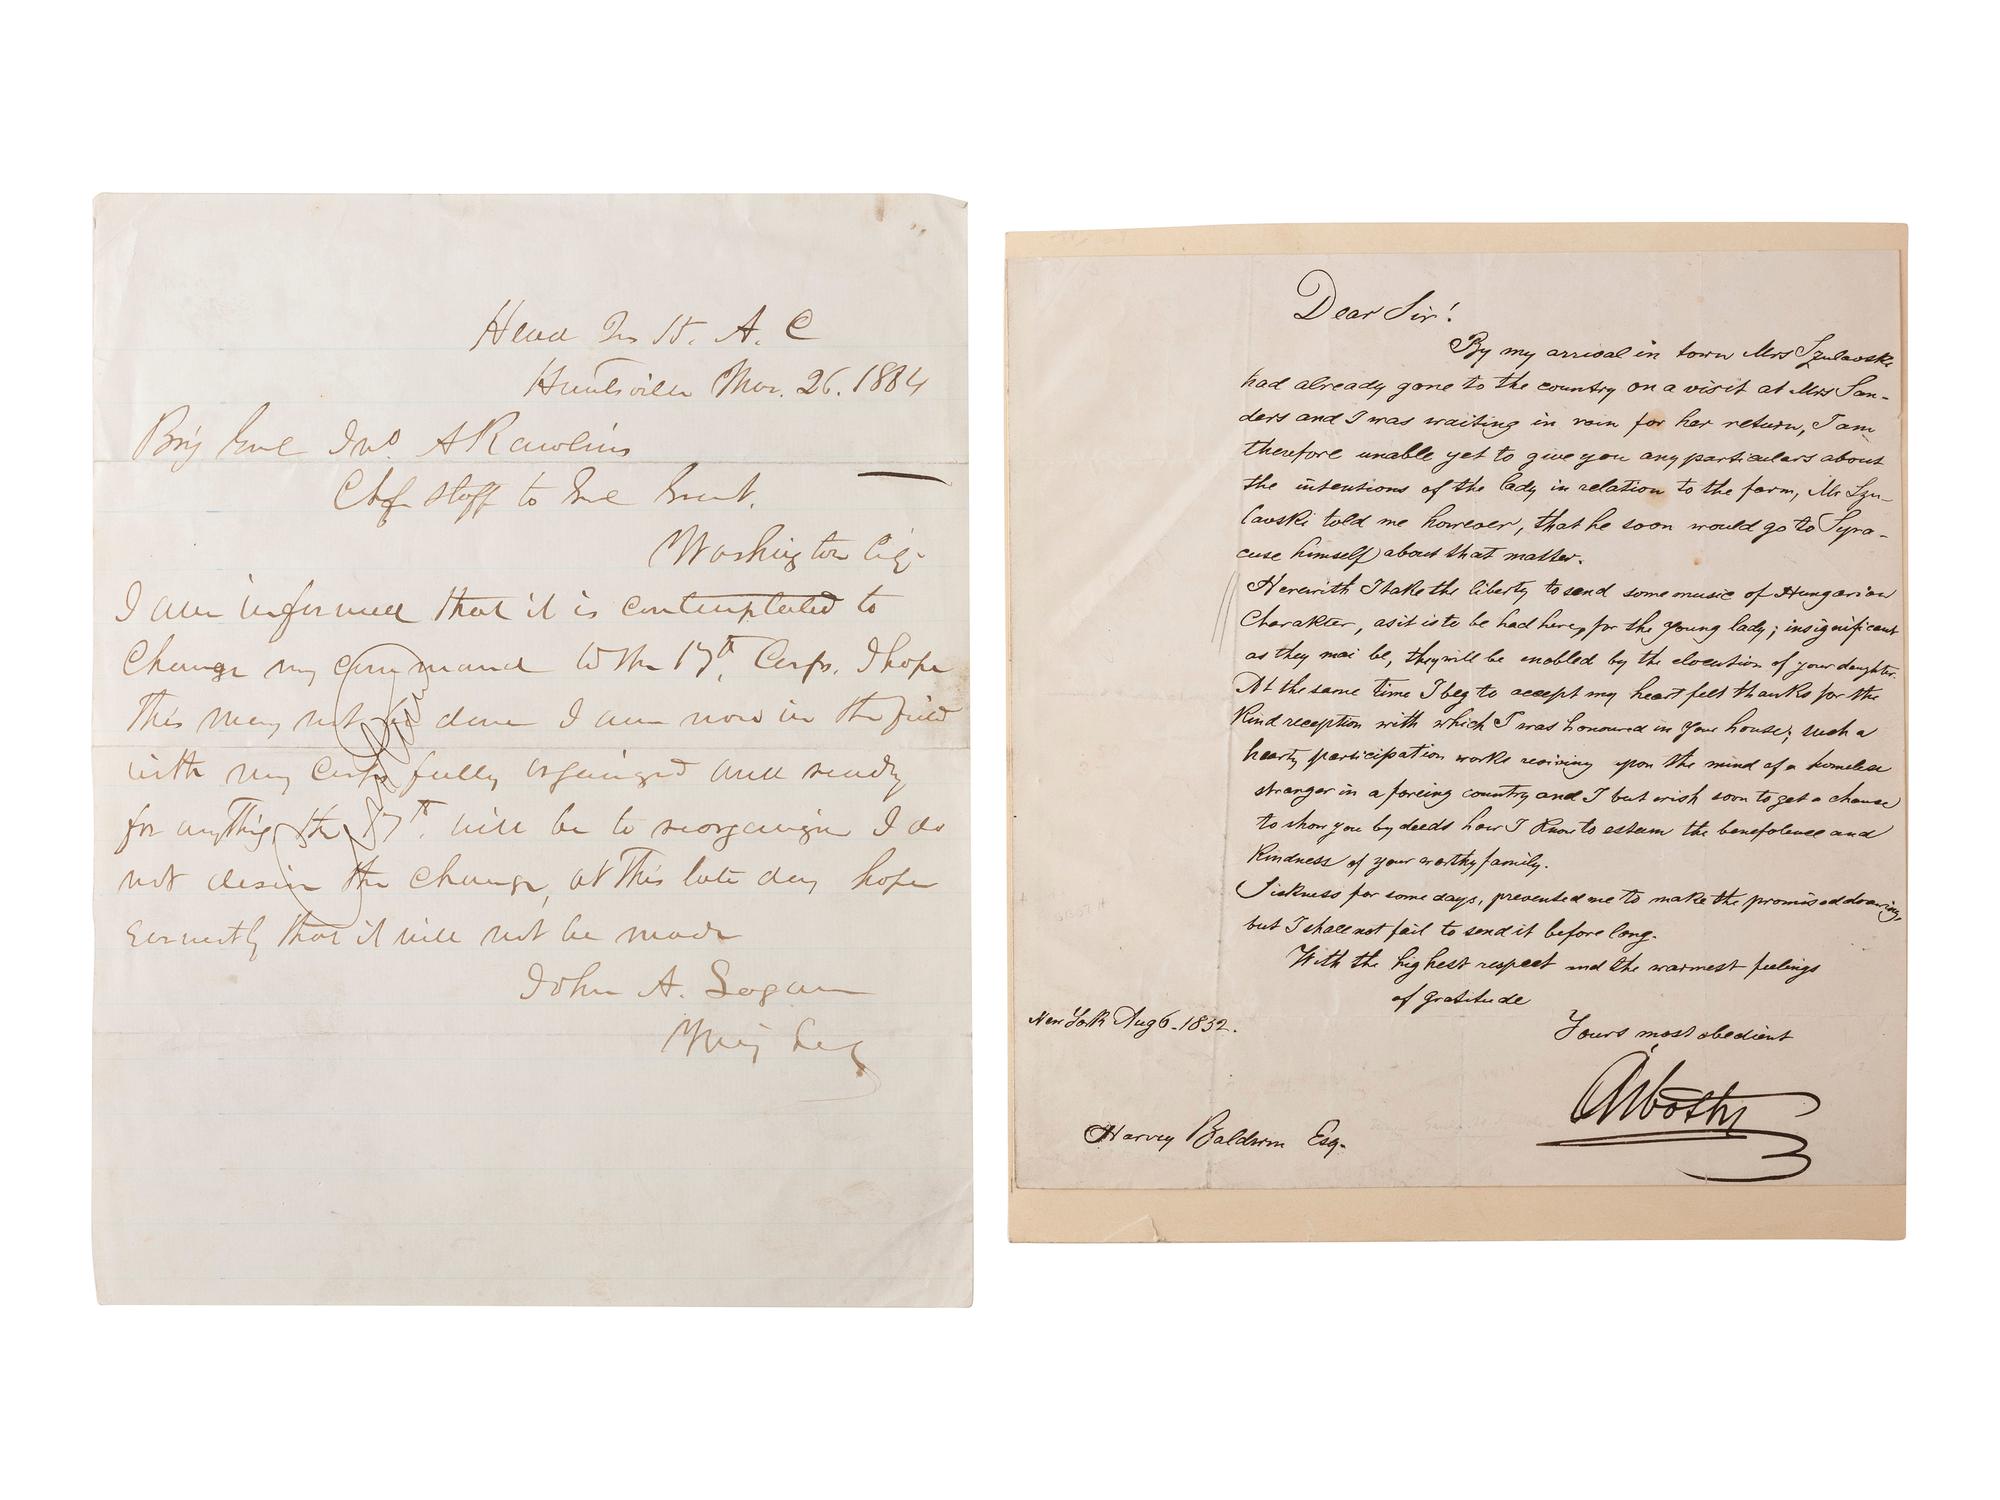 Head Qrs 15. A. C
Huntsville Mar. 26. 1864
Brig Genl Jno. A Rawlins
Chf staff to Genl Grant.
Washington City
I am informed that it is contemplated to
Change my command to the 17th, Corps. I hope
This may not be done I am now in the field
with my Corps fully organized and ready
for anything, the 17th. will be to reorganize I do
not desire the change, at This late day hope
earnestly that it will not be made
John A. Logan
Maj Gen
Dear Sir!
By my arrival in town Mrs Szulavski
had already gone to the country on a visit at Mrs San-
ders and I was waiting in vain for her return, I am
therefore unable yet to give you any particulars about
the intentions of the lady in relation to the farm, Mr Szu-
lavski told me however, that he soon would go to Syra-
cuse himself about that matter.
Herewith I take the liberty to send some music of Hungarian
Charakter, as it is to be had here, for the young lady; insignificant
as they mai be, they will be enobled by the elocution of your daughter.
At the same time I beg to accept my heart felt thanks for the
kind reception with which I was honoured in your house; such a
hearty participation works reviving upon the mind of a homeless
stranger in a foreing country and I but wish soon to get a chanse
to show you by deeds how I know to esteem the benefolence and
kindness of your worthy family.
Sickness for some days, prevented me to make the promised drawing,
but I shall not fail to send it before long.
With the highest respect and the warmest feelings
of gratitude
New York Aug 6. 1852.
Yours most obedient
Árbothy
Harvey Baldwin Esq.